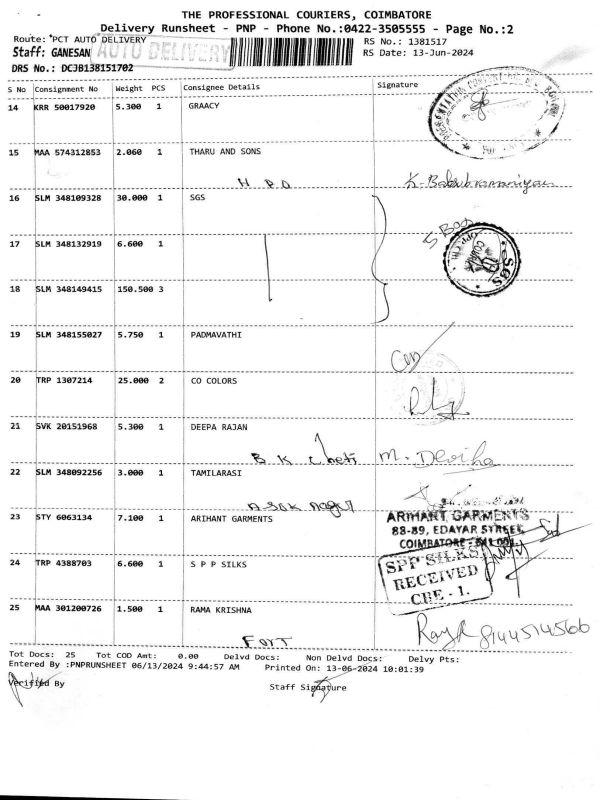 THE PROFESSIONAL COURIERS, COIMBATORE
Delivery Runsheet - PNP - Phone No.:0422-3505555 - Page No.:2
Route: *PCT AUTO DELIVERY
RS No.: 1381517
Staff: GANESAN
AUTO DELIVERY
RS Date: 13-Jun-2024
DRS No.: DCJB138151702
S No Consignment No Weight PCS Consignee Details Signature
14 KRR 50017920 5.300 1 GRAACY
15 MAA 574312853 2.060 1 THARU AND SONS
H P O
16 SLM 348109328 30.000 1 SGS
5 Box
SGS
17 SLM 348132919 6.600 1
18 SLM 348149415 150.500 3
19 SLM 348155027 5.750 1 PADMAVATHI
20 TRP 1307214 25.000 2 CO COLORS
21 SVK 20151968 5.300 1 DEEPA RAJAN
B K Cheti M.
22 SLM 348092256 3.000 1 TAMILARASI
ASOK Nagar
23 STY 6063134 7.100 1 ARIHANT GARMENTS
ARIHANT GARMENTS
88-89, EDAYAR STREET,
COIMBATORE
24 TRP 4388703 6.600 1 S P P SILKS
SPP SILKS
RECEIVED
CBE - 1.
25 MAA 301200726 1.500 1 RAMA KRISHNA
FORT
Tot Docs: 25 Tot COD Amt: 0.00 Delvd Docs: Non Delvd Docs: Delvy Pts:
Entered By :PNPRUNSHEET 06/13/2024 9:44:57 AM Printed On: 13-06-2024 10:01:39
Verified By
Staff Signature